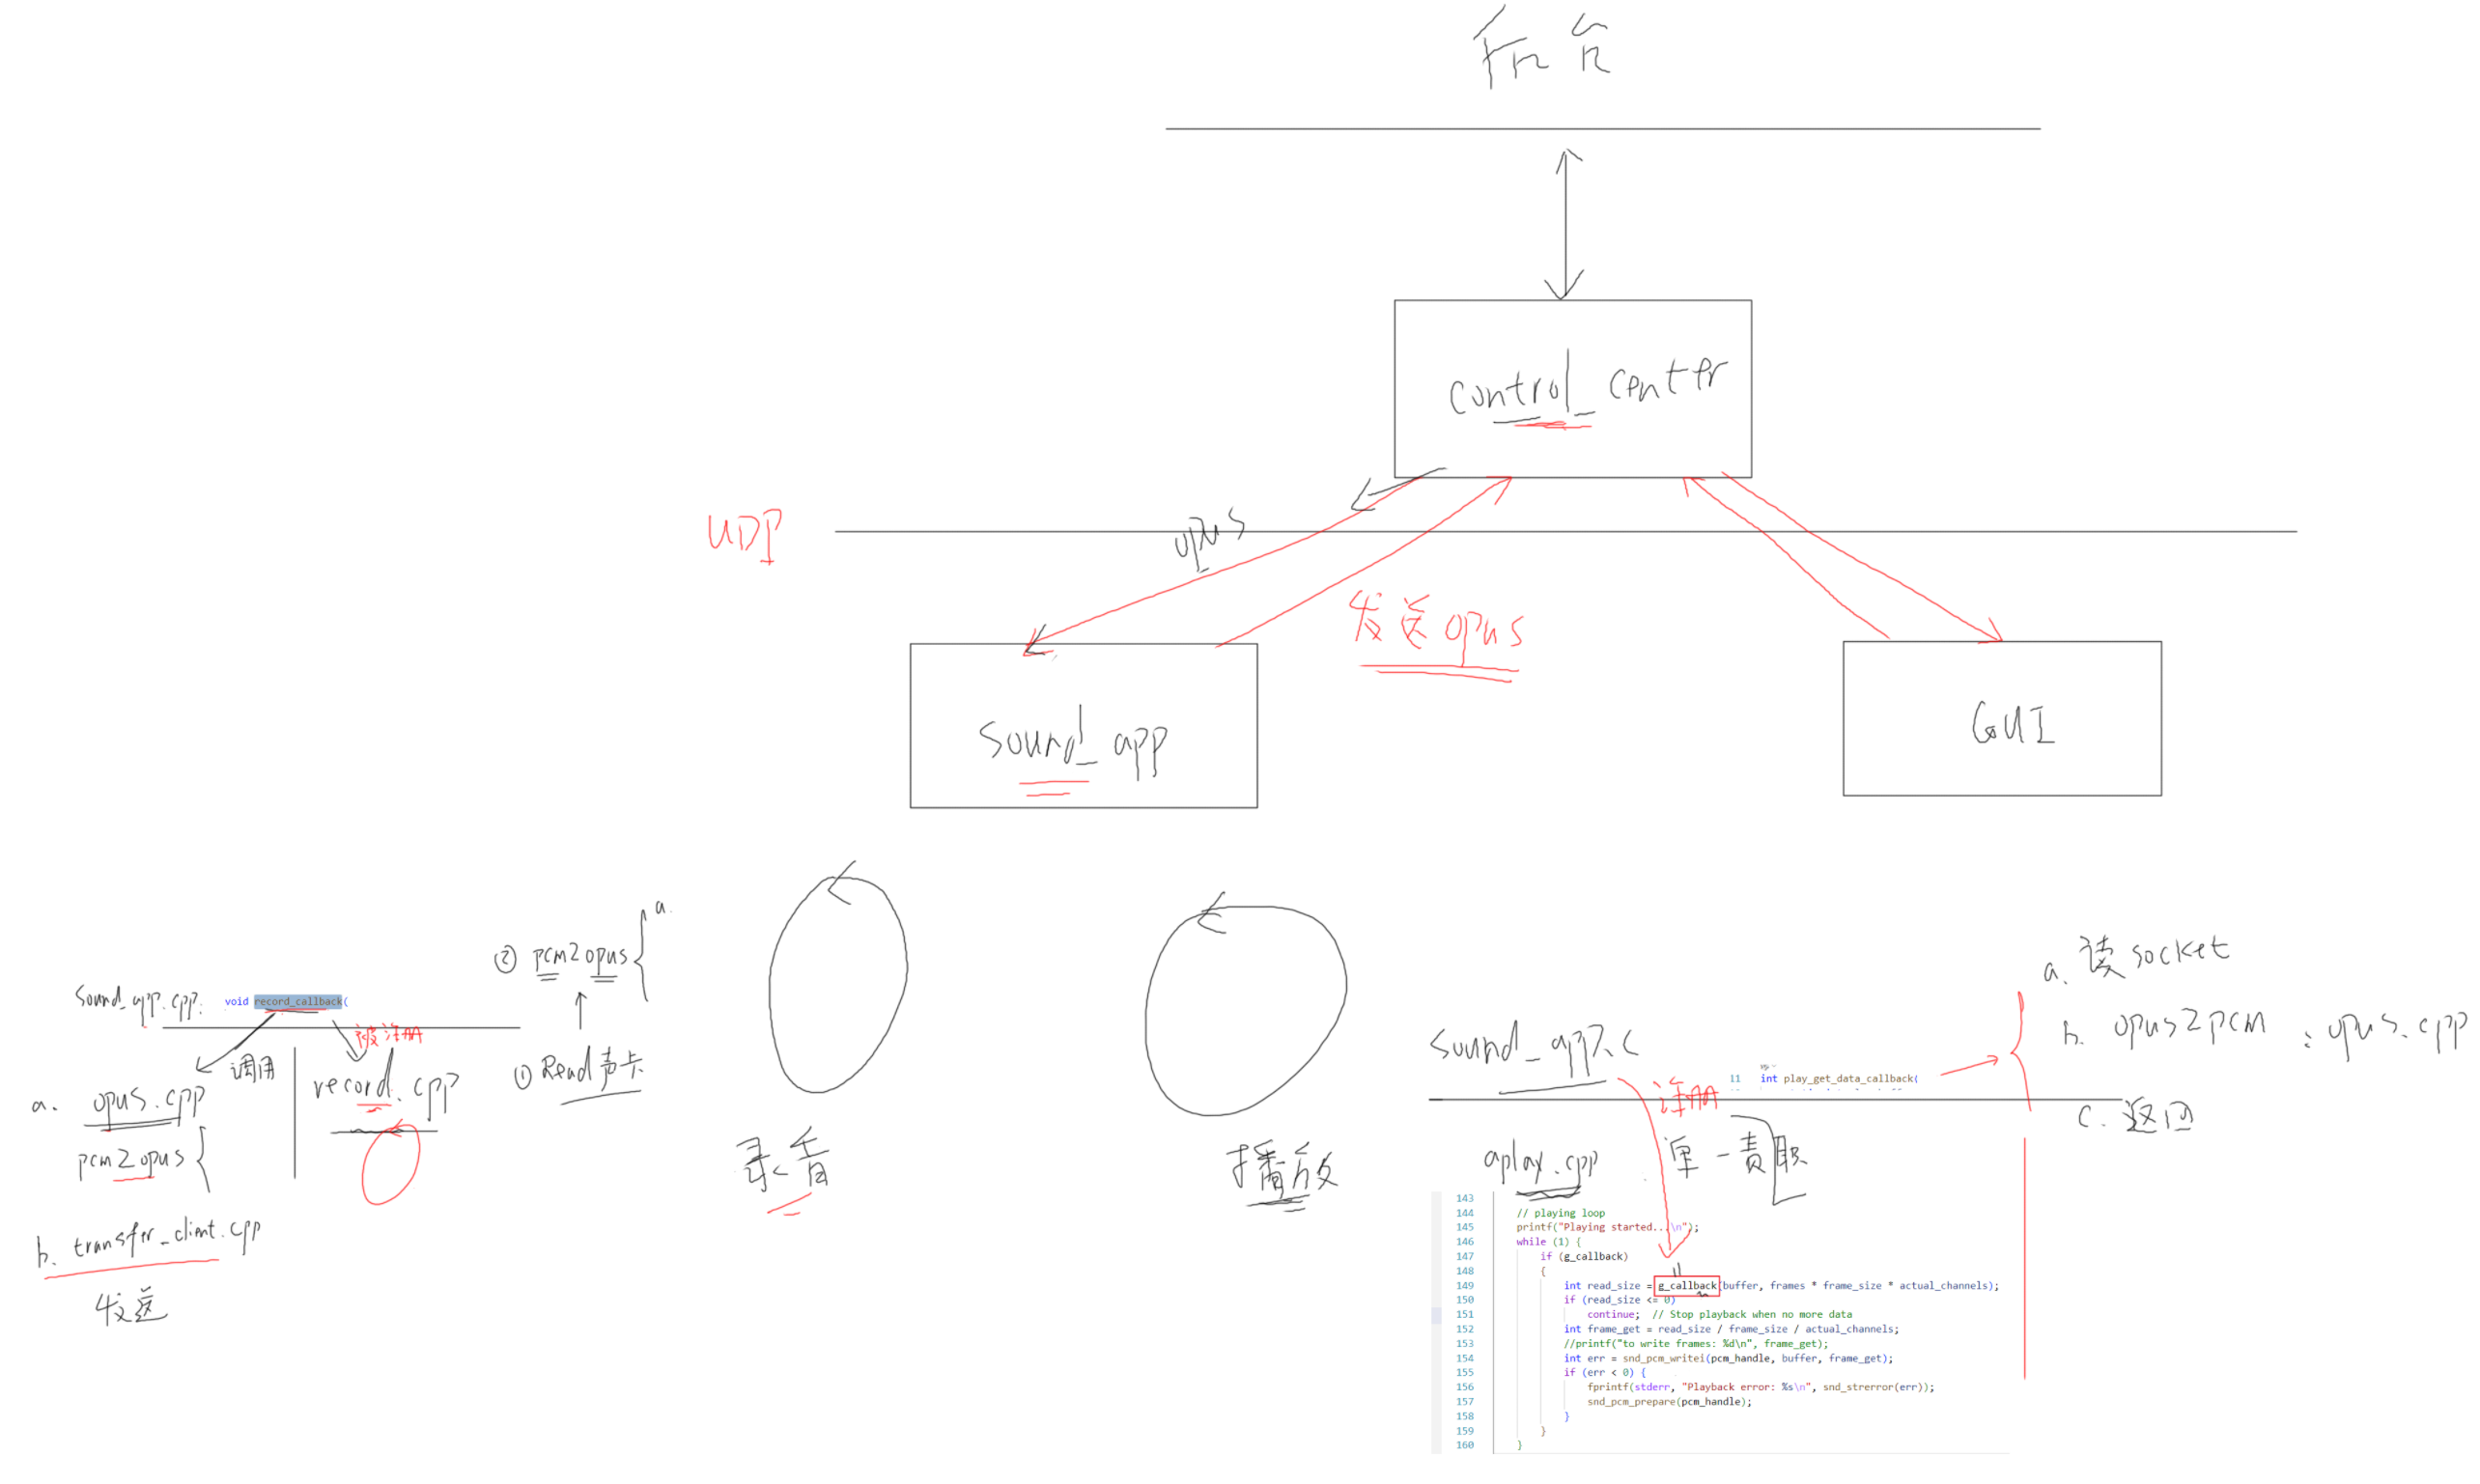 control_center
UDP
opus
发送opus
sound_app
GUI
② pcm2opus
a.
sound_app.cpp:
void record_callback(
被注册
调用
record.cpp
① Read声卡
a. opus.cpp
pcm2opus
b. transfer_client.cpp
发送
录音
播放
a. 读socket
sound_app.c
11 int play_get_data_callback(
b. opus2pcm : opus.cpp
注册
c. 返回
aplay.cpp
单一责职
143
144 // playing loop
145 printf("Playing started...\n");
146 while (1) {
147 if (g_callback)
148 {
149 int read_size = g_callback(buffer, frames * frame_size * actual_channels);
150 if (read_size <= 0)
151 continue; // Stop playback when no more data
152 int frame_get = read_size / frame_size / actual_channels;
153 //printf("to write frames: %d\n", frame_get);
154 int err = snd_pcm_writei(pcm_handle, buffer, frame_get);
155 if (err < 0) {
156 fprintf(stderr, "Playback error: %s\n", snd_strerror(err));
157 snd_pcm_prepare(pcm_handle);
158 }
159 }
160 }